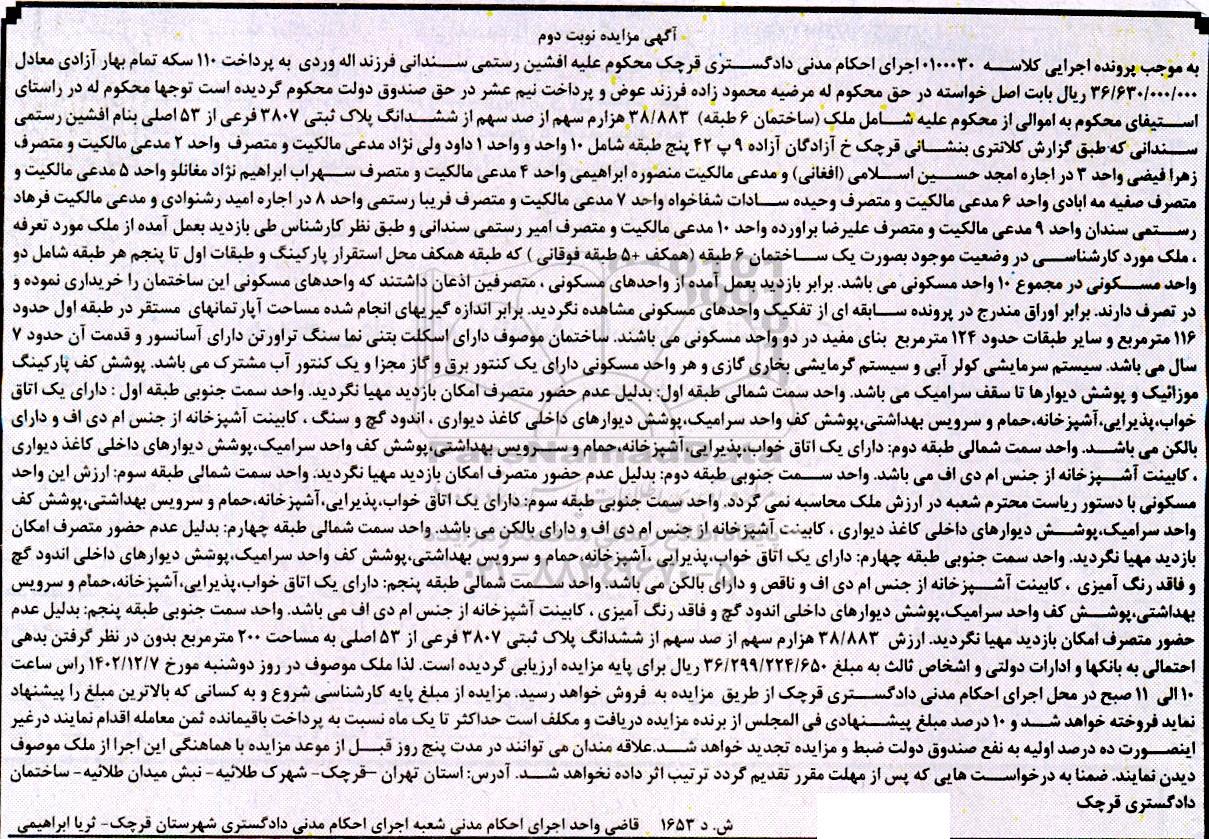 آگهی مزایده نوبت دوم
به موجب پرونده اجرایی کلاسه ۰۱۰۰۰۳۰ اجرای احکام مدنی دادگستری قرچک محکوم علیه افشین رستمی سندانی فرزند اله وردی به پرداخت ۱۱۰ سکه تمام بهار آزادی معادل
۳۶/۶۳۰/۰۰۰/۰۰۰ ریال بابت اصل خواسته در حق محکوم له مرضیه محمود زاده فرزند عوض و پرداخت نیم عشر در حق صندوق دولت محکوم گردیده است توجها محکوم له در راستای
استیفای محکوم به اموالی از محکوم علیه شامل ملک (ساختمان ۶ طبقه) ۳۸/۸۸۳ هزارم سهم از صد سهم از ششدانگ پلاک ثبتی ۳۸۰۷ فرعی از ۵۳ اصلی بنام افشین رستمی
سندانی که طبق گزارش کلانتری بنشانی قرچک خ آزادگان آزاده ۹ پ ۴۲ پنج طبقه شامل ۱۰ واحد و واحد ۱ داود ولی نژاد مدعی مالکیت و متصرف واحد ۲ مدعی مالکیت و متصرف
زهرا فیضی واحد ۳ در اجاره امجد حسین اسلامی (افغانی) و مدعی مالکیت منصوره ابراهیمی واحد ۴ مدعی مالکیت و متصرف سهراب ابراهیم نژاد مغانلو واحد ۵ مدعی مالکیت و
متصرف صفیه مه ابادی واحد ۶ مدعی مالکیت و متصرف وحیده سادات شفاخواه واحد ۷ مدعی مالکیت و متصرف فریبا رستمی واحد ۸ در اجاره امید رشنوادی و مدعی مالکیت فرهاد
رستمی سندان واحد ۹ مدعی مالکیت و متصرف علیرضا براورده واحد ۱۰ مدعی مالکیت و متصرف امیر رستمی سندانی و طبق نظر کارشناس طی بازدید بعمل آمده از ملک مورد تعرفه
، ملک مورد کارشناسی در وضعیت موجود بصورت یک ساختمان ۶ طبقه (همکف +۵ طبقه فوقانی ) که طبقه همکف محل استقرار پارکینگ و طبقات اول تا پنجم هر طبقه شامل دو
واحد مسکونی در مجموع ۱۰ واحد مسکونی می باشد. برابر بازدید بعمل آمده از واحدهای مسکونی ، متصرفین اذعان داشتند که واحدهای مسکونی این ساختمان را خریداری نموده و
در تصرف دارند. برابر اوراق مندرج در پرونده سابقه ای از تفکیک واحدهای مسکونی مشاهده نگردید. برابر اندازه گیریهای انجام شده مساحت آپارتمانهای مستقر در طبقه اول حدود
۱۱۶ مترمربع و سایر طبقات حدود ۱۲۴ مترمربع بنای مفید در دو واحد مسکونی می باشند. ساختمان موصوف دارای اسکلت بتنی نما سنگ تراورتن دارای آسانسور و قدمت آن حدود ۷
سال می باشد. سیستم سرمایشی کولر آبی و سیستم گرمایشی بخاری گازی و هر واحد مسکونی دارای یک کنتور برق و گاز مجزا و یک کنتور آب مشترک می باشد. پوشش کف پارکینگ
موزائیک و پوشش دیوارها تا سقف سرامیک می باشد. واحد سمت شمالی طبقه اول: بدلیل عدم حضور متصرف امکان بازدید مهیا نگردید. واحد سمت جنوبی طبقه اول : دارای یک اتاق
خواب،پذیرایی،آشپزخانه،حمام و سرویس بهداشتی،پوشش کف واحد سرامیک،پوشش دیوارهای داخلی کاغذ دیواری ، اندود گچ و سنگ ، کابینت آشپزخانه از جنس ام دی اف و دارای
بالکن می باشد. واحد سمت شمالی طبقه دوم: دارای یک اتاق خواب،پذیرایی،آشپزخانه،حمام و سرویس بهداشتی،پوشش کف واحد سرامیک،پوشش دیوارهای داخلی کاغذ دیواری
، کابینت آشپزخانه از جنس ام دی اف می باشد. واحد سمت جنوبی طبقه دوم: بدلیل عدم حضور متصرف امکان بازدید مهیا نگردید. واحد سمت شمالی طبقه سوم: ارزش این واحد
مسکونی با دستور ریاست محترم شعبه در ارزش ملک محاسبه نمی گردد. واحد سمت جنوبی طبقه سوم: دارای یک اتاق خواب،پذیرایی،آشپزخانه،حمام و سرویس بهداشتی،پوشش کف
واحد سرامیک،پوشش دیوارهای داخلی کاغذ دیواری ، کابینت آشپزخانه از جنس ام دی اف و دارای بالکن می باشد. واحد سمت شمالی طبقه چهارم: بدلیل عدم حضور متصرف امکان
بازدید مهیا نگردید. واحد سمت جنوبی طبقه چهارم: دارای یک اتاق خواب،پذیرایی ،آشپزخانه،حمام و سرویس بهداشتی،پوشش کف واحد سرامیک،پوشش دیوارهای داخلی اندود گچ
و فاقد رنگ آمیزی ، کابینت آشپزخانه از جنس ام دی اف و ناقص و دارای بالکن می باشد. واحد سمت شمالی طبقه پنجم: دارای یک اتاق خواب،پذیرایی،آشپزخانه،حمام و سرویس
بهداشتی،پوشش کف واحد سرامیک،پوشش دیوارهای داخلی اندود گچ و فاقد رنگ آمیزی ، کابینت آشپزخانه از جنس ام دی اف می باشد. واحد سمت جنوبی طبقه پنجم: بدلیل عدم
حضور متصرف امکان بازدید مهیا نگردید. ارزش ۳۸/۸۸۳ هزارم سهم از صد سهم از ششدانگ پلاک ثبتی ۳۸۰۷ فرعی از ۵۳ اصلی به مساحت ۲۰۰ مترمربع بدون در نظر گرفتن بدهی
احتمالی به بانکها و ادارات دولتی و اشخاص ثالث به مبلغ ۳۶/۲۹۹/۲۲۴/۶۵۰ ریال برای پایه مزایده ارزیابی گردیده است. لذا ملک موصوف در روز دوشنبه مورخ ۱۴۰۲/۱۲/۷ راس ساعت
۱۰ الی ۱۱ صبح در محل اجرای احکام مدنی دادگستری قرچک از طریق مزایده به فروش خواهد رسید. مزایده از مبلغ پایه کارشناسی شروع و به کسانی که بالاترین مبلغ را پیشنهاد
نماید فروخته خواهد شد و ۱۰ درصد مبلغ پیشنهادی فی المجلس از برنده مزایده دریافت و مکلف است حداکثر تا یک ماه نسبت به پرداخت باقیمانده ثمن معامله اقدام نمایند درغیر
اینصورت ده درصد اولیه به نفع صندوق دولت ضبط و مزایده تجدید خواهد شد.علاقه مندان می توانند در مدت پنج روز قبل از موعد مزایده با هماهنگی این اجرا از ملک موصوف
دیدن نمایند. ضمنا به درخواست هایی که پس از مهلت مقرر تقدیم گردد ترتیب اثر داده نخواهد شد. آدرس: استان تهران –قرچک- شهرک طلائیه- نبش میدان طلائیه- ساختمان
دادگستری قرچک
ش. د ۱۶۵۳ قاضی واحد اجرای احکام مدنی شعبه اجرای احکام مدنی دادگستری شهرستان قرچک- ثریا ابراهیمی